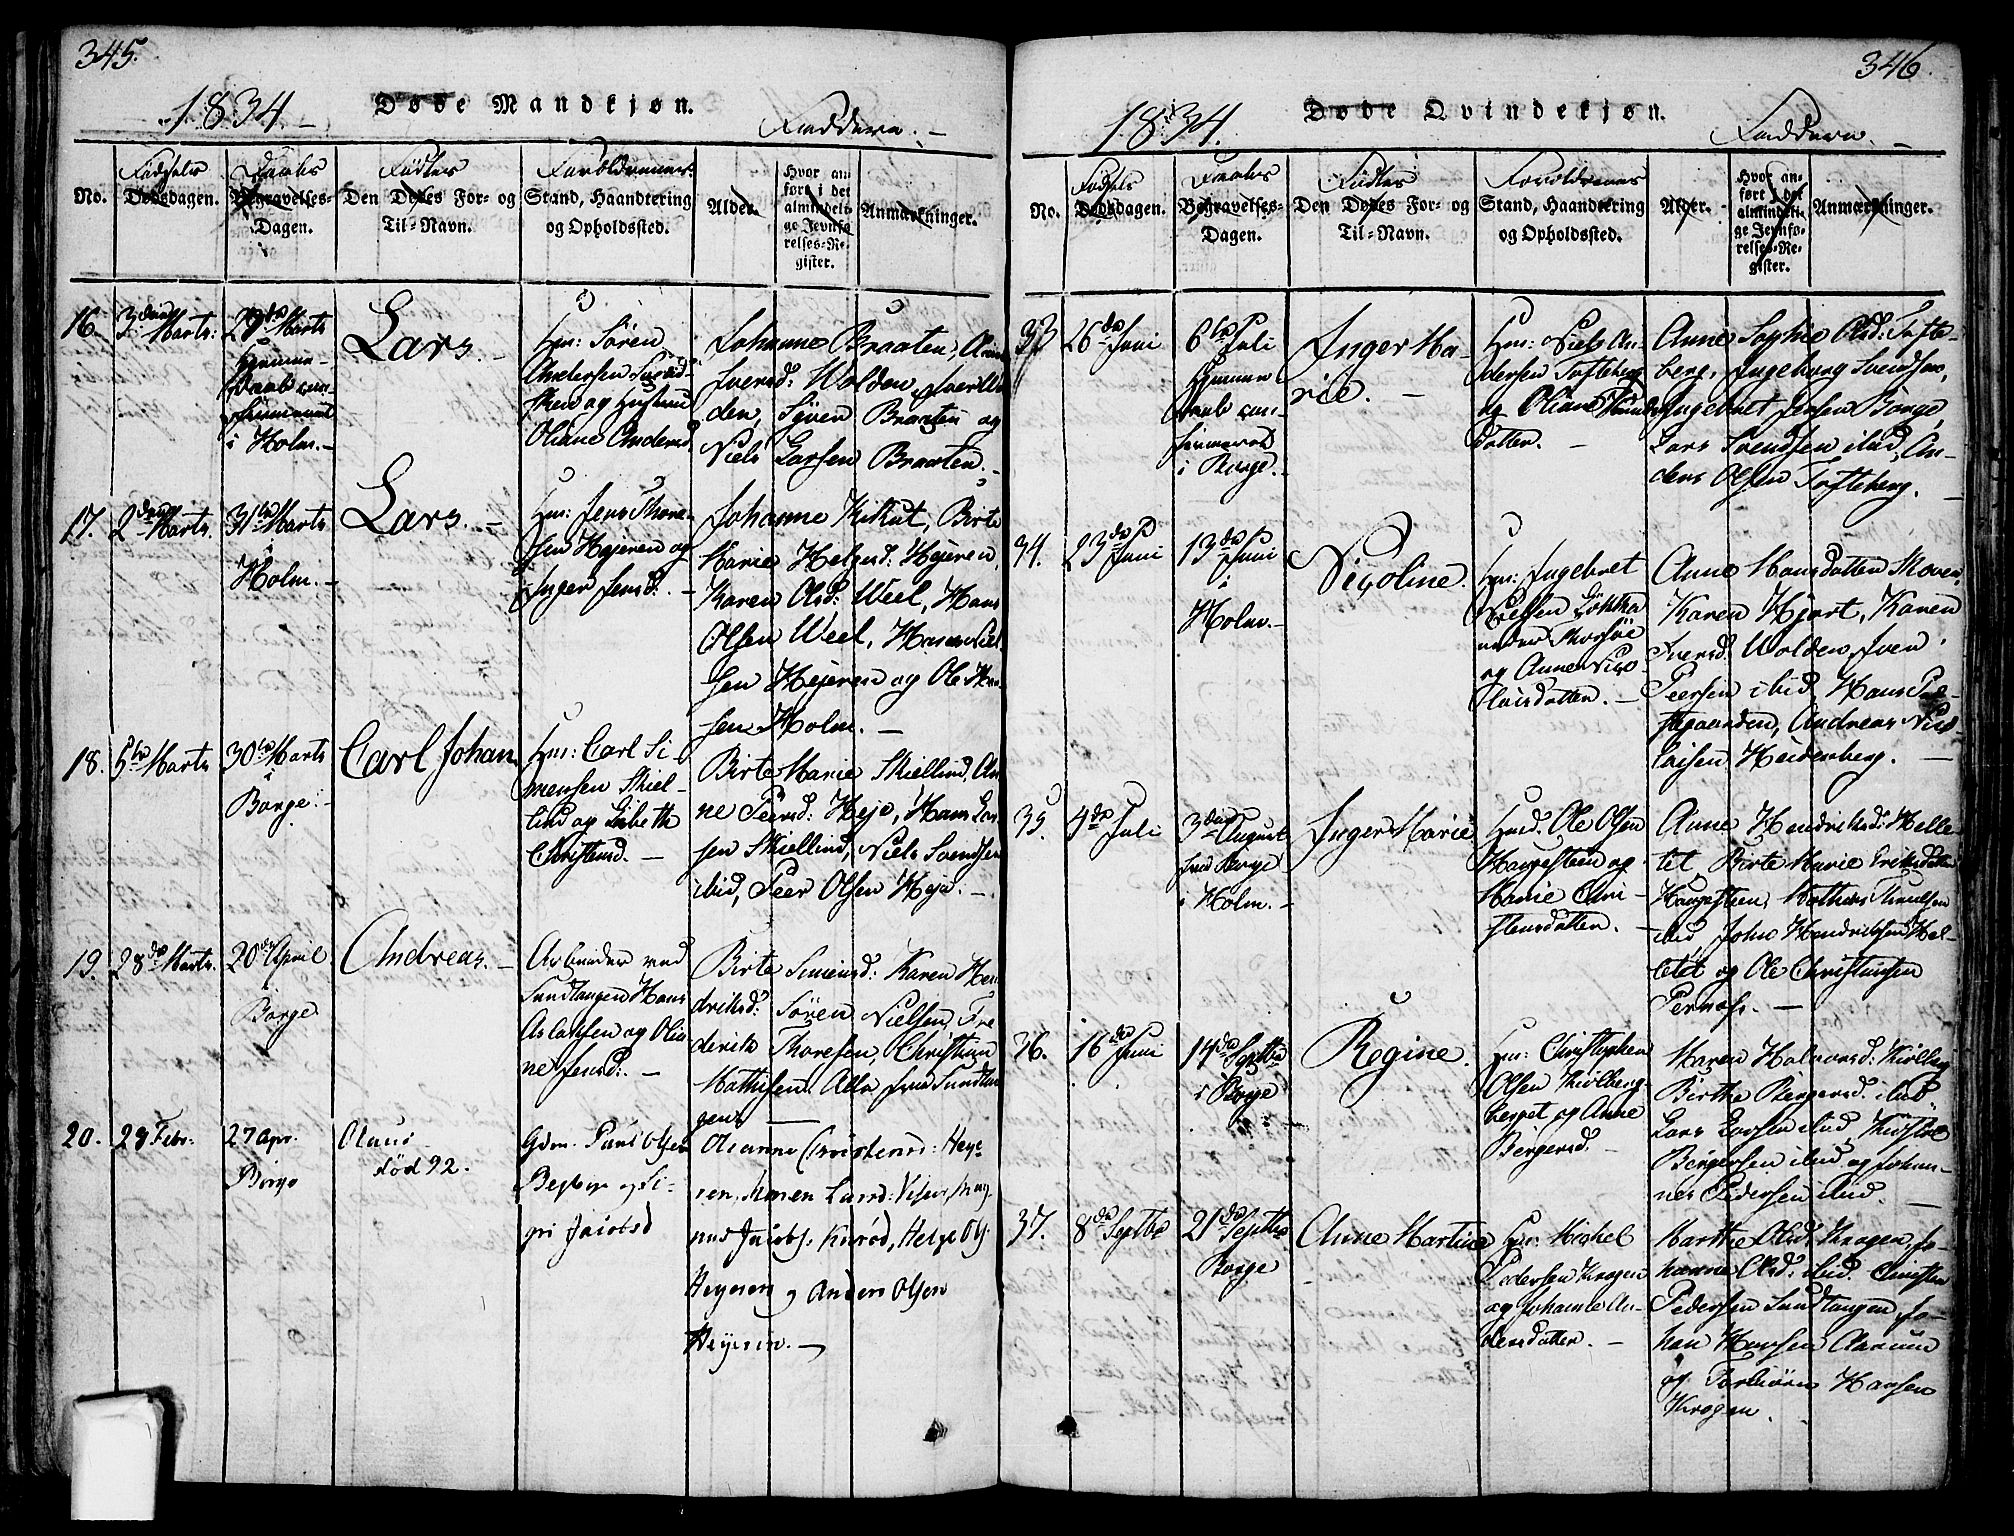 345.
1834
Døde Mandkjøn.
Faddere.
No.
Fødsels
Dødsdagen.
Daabs
Begravelses-
Dagen.
Fødtes
Den Dødes For- og
Til-Navn.
Forældrenes
Stand, Haandtering
og Opholdssted.
Alder.
Hvor an-
ført i det
almindeli-
ge Jevnfø-
relses-Re-
gister.
Anmærkninger.
16.
3die Marts.
Hjemme-
i Holm.
Lars.
Hm: Søren
Andersen
og Hustrue
Oliane Andersd.
Johanne Braaten,
Iversd: Wolden,
den, Siven Braaten og
Niels Larsen Braaten.
17.
2den Marts.
31te Marts
i
Holm.
Lars.
Hm: Jens Thore-
sen Hejeren og
Inger Jensd:
Johanne Kikut, Birte
Marie Helgesd: Hejeren,
Karen Olsd: Weel, Hans
Olsen Weel, Hans Niel-
sen Hejeren og Ole
sen Holm.
18.
5te Marts
30te Marts
i
Borge.
Carl Johan
Hm: Carl Si-
mensen Skiel-
lind og Lisbeth
Christensd.
Birte Marie Skiellind, An-
ne Peersd: Heje, Hans Lar-
sen Skiellind, Niels Svendsen
ibid, Peer Olsen Heje.
19.
28de Marts.
20de April
i
Borge
Andreas.
Arbeider ved
Sundtangen Hans
Aslaksen og Oli-
ne Jensd:
Birte Simensd: Karen Hen-
driksd: Søren Nielsen, Fre-
derik Thoresen, Christian
Mathisen. Alle fra Sundtan-
gen
20.
27 Apr.
Borge
Olaus
død 92.
Gdm. Paul Olsen
og Si-
gri Jacobsd
Olianne Christensd: Hey-
ren, Maren Larsd:
nus Jacobs: Kurød, Helge Ols:
Heyeren og Anders Olsen
Heyeren.
346.
1834.
Døde Qvindekjøn.
Faddere.
No.
Fødsels
Dødsdagen.
Daabs
Begravelses-
Dagen.
Fødtes
Den Dødes For- og
Til-Navn.
Forældrenes
Stand, Haandtering
og Opholdssted.
Alder.
Hvor an-
ført i det
almindeli-
ge Jevnfø-
relses-Re-
gister.
Anmærkninger.
33
26de Juni
6te Juli
i Borge.
Inger Ma-
rie.
Hm: Niels An-
dersen Tofteberg
og Oliane
datter.
Anne Sophie Olsd: Tofte-
berg, Ingeborg Svendsen,
Ingebret Jensen Borge,
Lars Svendsen ibid, An-
ders Olsen Tofteberg.
34.
23de Juni
13de Juni
i
Holm.
Nicoline.
Hm: Ingebret
Nielsen Løkka
under Thorsøe
og Anne Nico-
laisdatter.
Anne Hansdatter
Karen Hjort, Karen
Iversd: Wolden, Iver
Peersen ibid, Hans
Andreas Nico-
laisen Heidenberg.
35.
4de Juli
3die August
fra Borge
i Holm.
Inger Marie
Husd. Ole Olsen
Haugesteen og
Marie Chri-
stensdatter.
Anne Hendriksd: Helle-
tet, Birte Marie Eriksdatter
Haugesteen, Mathias
ibid, John Hendriksen Hel-
letet og Ole Christiansen
36.
16de Juni
14de Septbr
i Borge
Regine.
Hm: Christopher
Olsen Kiølberg-
berget og Anne
Bergersd.
Maren Halvorsd: Kiølberg
Birthe Bergersd: ibid
Lars Larsen ibid,
Bergersen ibid og Johan-
nes Pedersen ibid.
37.
8de Septbr
21de Septbr
Borge
Anne Martine
Hm: Michel
Pedersen Krogen
og Johanne An-
dersdatter.
Marthe Olsd: Krogen, Jo-
hanne Olsd: ibid. Christen
Pedersen Sundtangen, Jo-
han Hansen Aarum
og Torbiørn Hansen
Krogen.